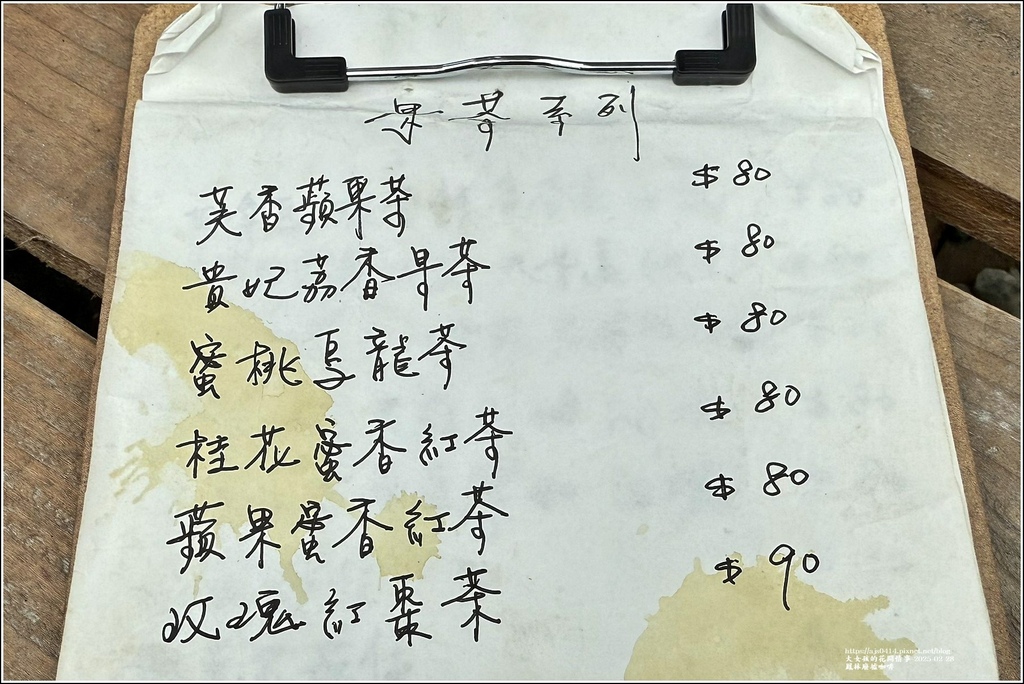 果茶系列
芙香蘋果茶 $80
貴妃荔香果茶 $80
蜜桃烏龍茶 $80
桂花蜜香紅茶 $80
蘋果蜜香紅茶 $80
玫瑰紅棗茶 $90
大女孩的花間情事 2025-02-28
鳳林